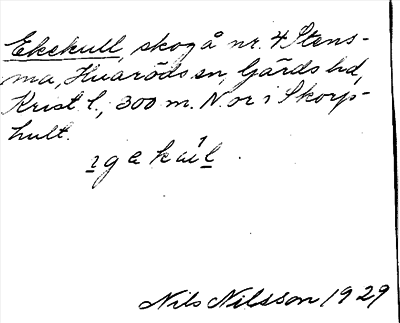 Ekekull, skog å nr. 4 Stens-
ma, Huaröds sn, Gärds hd,
Krist. l., 300 m. N. or i Skorp-
hult.
Nils Nilsson 1929